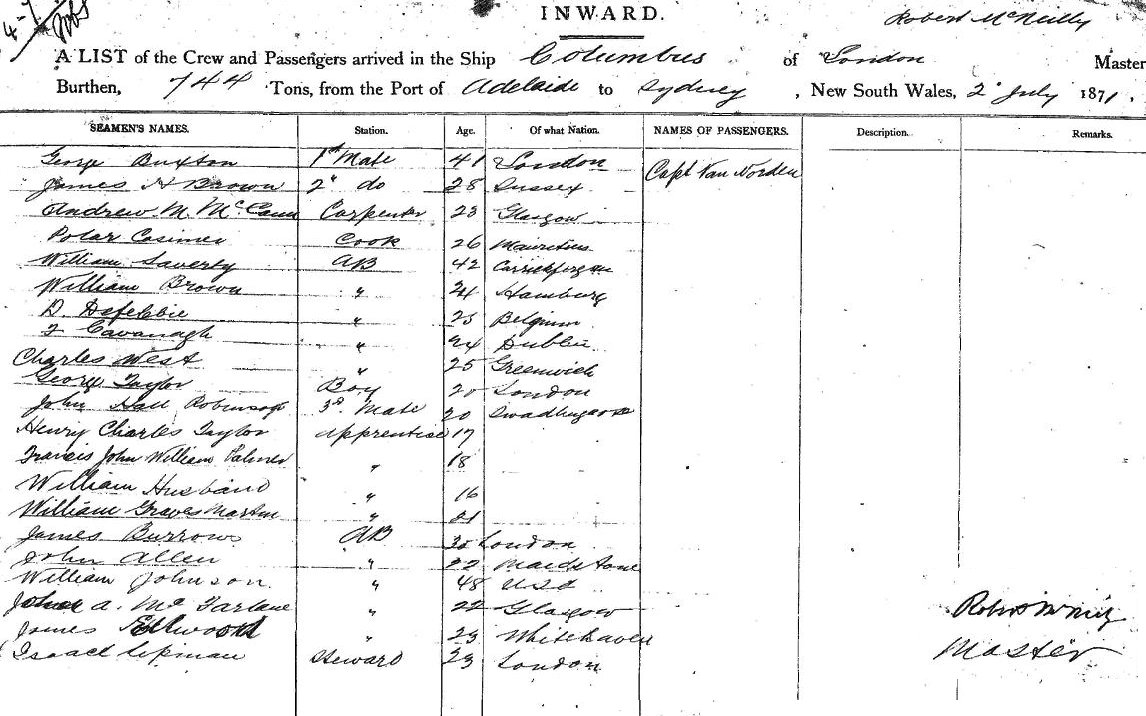 INWARD.
Robert McNeilly
A LIST of the Crew and Passengers arrived in the Ship Columbus of London Master
Burthen, 744 Tons, from the Port of Adelaide to Sydney, New South Wales, 2d July 1871.
SEAMEN'S NAMES. Station. Age. Of what Nation. NAMES OF PASSENGERS. Description. Remarks.
George Buxton 1st Mate 41 London Capt Van Norden
James H Brown 2d do 28 Sussex
Andrew M. McCann Carpenter 23 Glasgow
Polar Casimer Cook 26 Mauritius
William Laverty AB 42 Carrickfergus
William Brown " 24 Hamburg
D. " 25 Belgium
Cavanagh " 24 Dublin
Charles West " 25 Greenwich
George Taylor Boy 20 London
John Hall Robinson 3d Mate 20
Henry Charles Taylor Apprentice 17
Francis John William Palmer " 18
William Husband " 16
William Graves Martin " 21
James Burrows AB London
John Allen " 22 Maidstone
William Johnson " 48 USA
A. McFarlane " 22 Glasgow
James Ellwood " 23 Whitehaven
Isaac Lipman Steward 23 London
Master